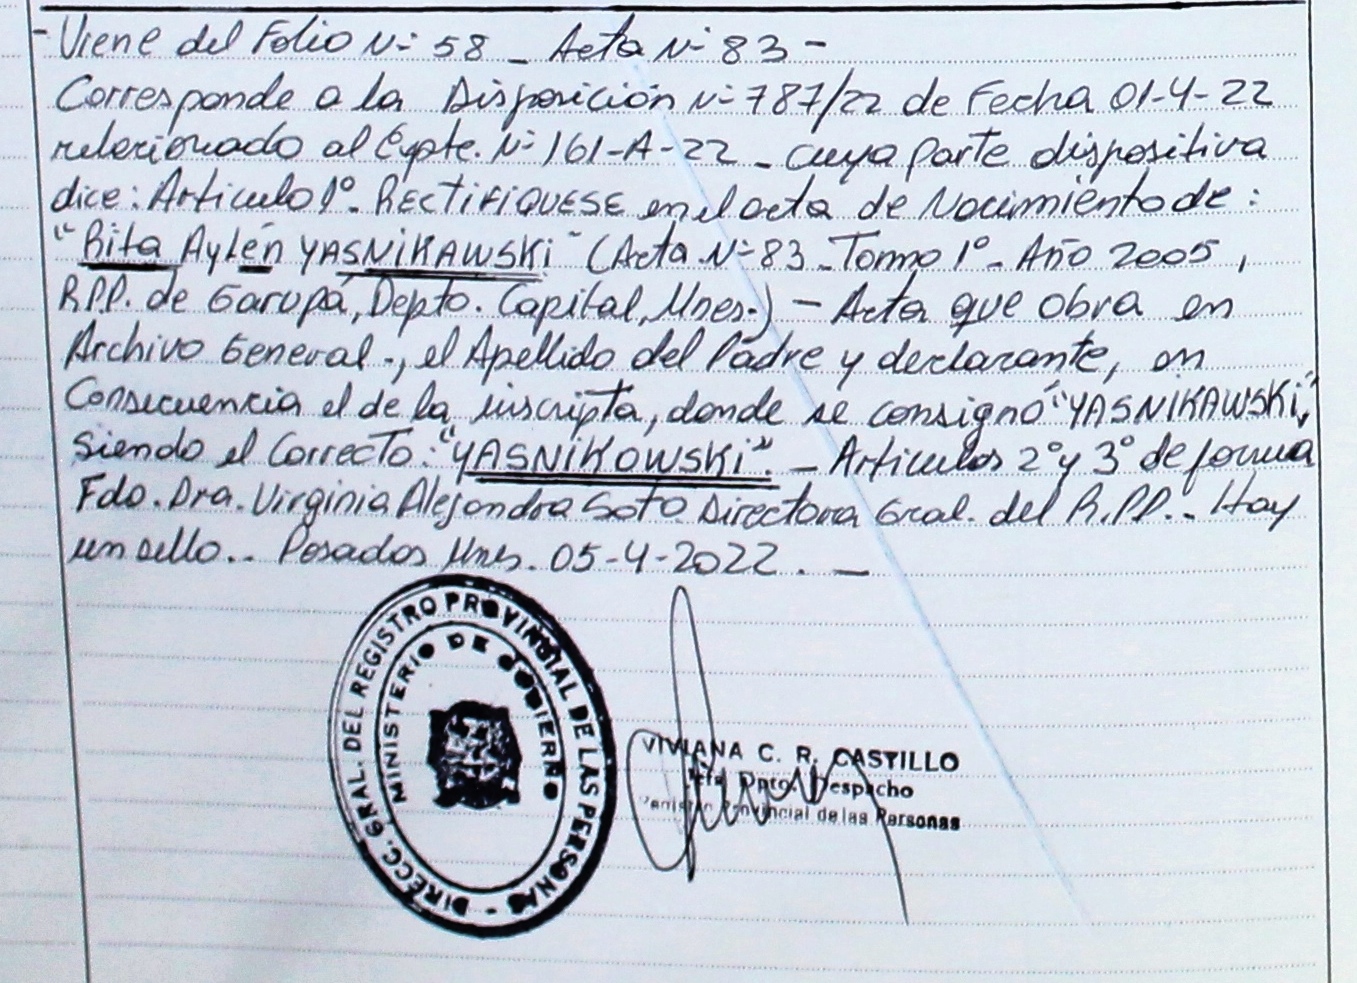 - Viene del Folio N- 58 _ Acta N- 83 -
Corresponde a la Disposición N- 787/22 de Fecha 01-4-22
relacionado al Expte. N- 161-A-22 _ cuya parte dispositiva
dice: Articulo 1°. RECTIFIQUESE en el acta de Nacimiento de:
"Rita Aylén YASNIKAWSKI" (Acta N- 83 _ Tomo 1° - Año 2005,
R.P.P. de Garupá, Depto. Capital, Mnes.) - Acta que obra en
Archivo General -, el Apellido del Padre y declarante, en
Consecuencia el de la inscripta, donde se consignó "YASNIKAWSKI",
siendo el Correcto: "YASNIKOWSKI". _ Articulos 2° y 3° de forma
Fdo. Dra. Virginia Alejandra Soto Directora Gral. del R.P.P. _ Hay
un sello.. Posadas Mnes. 05-4-2022. _
DIRECC. GRAL. DEL REGISTRO PROVINCIAL DE LAS PERSONAS -
MINISTERIO DE GOBIERNO
VIVIANA C. R. CASTILLO
Dpto. Despacho
Provincial de las Personas